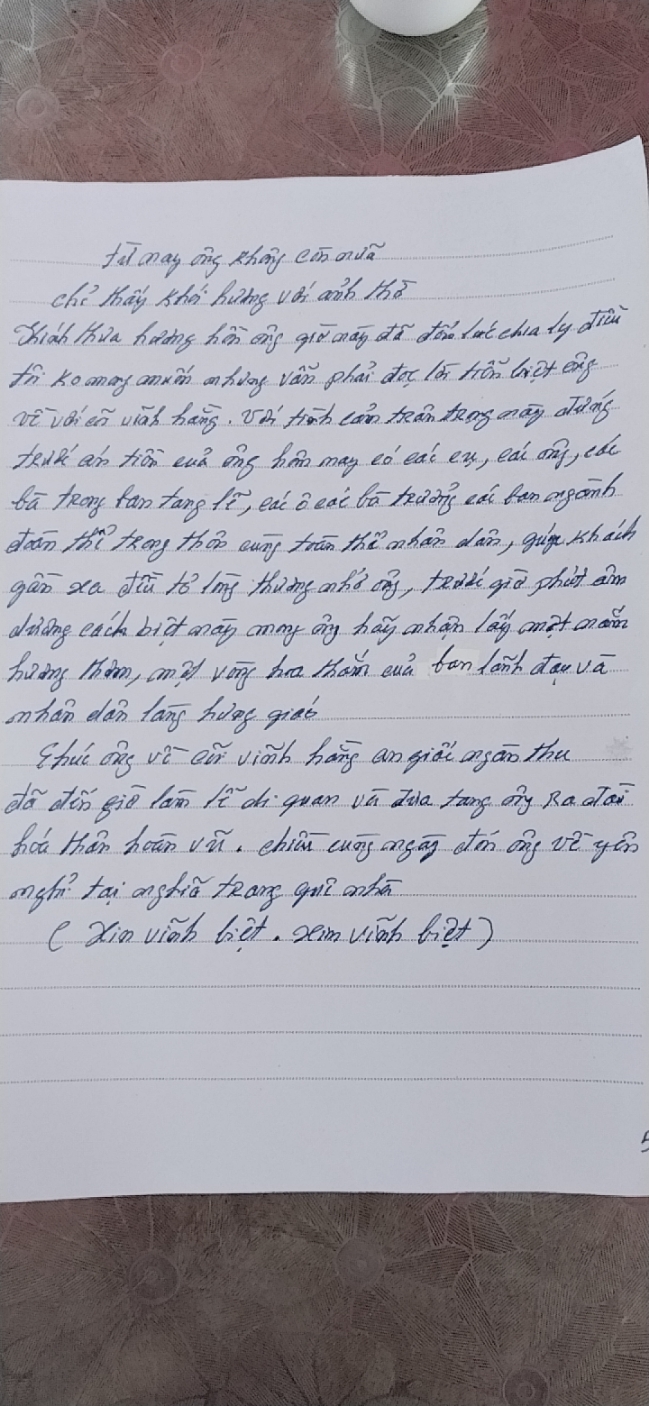 từ nay ông không còn nữa
chỉ thấy khói hương với ảnh thờ
Kính thưa hương hồn ông giờ này đã đến lúc chia ly điều
tôi ko mong muốn nhưng vẫn phải đọc lời tiễn biệt ông
về với cõi vĩnh hằng. Với tình cảm trân trọng này đứng
trước án tiền của ông hôm nay có các cụ, các ông, các
bà trong ban tang lễ, các ô các bà trưởng các ban ngành
đoàn thể trong thôn cùng toàn thể nhân dân, qúy khách
gần xa đều tỏ lòng thương nhớ ông, trước giờ phút âm
dương cách biệt này mong ông hãy nhận lấy một nắm
hương thơm, một vòng hoa thắm của ban lãnh đạo và
nhân dân làng hưng giáo
Chúc ông về cõi vĩnh hằng an giấc ngàn thu
đã đến giờ làm lễ di quan và đưa tang ông Ra đài
hóa thân hoàn vũ. chiều cùng ngày đón ông về yên
nghỉ tại nghĩa trang quê nhà
( xin vĩnh biệt. xin vĩnh biệt )
5